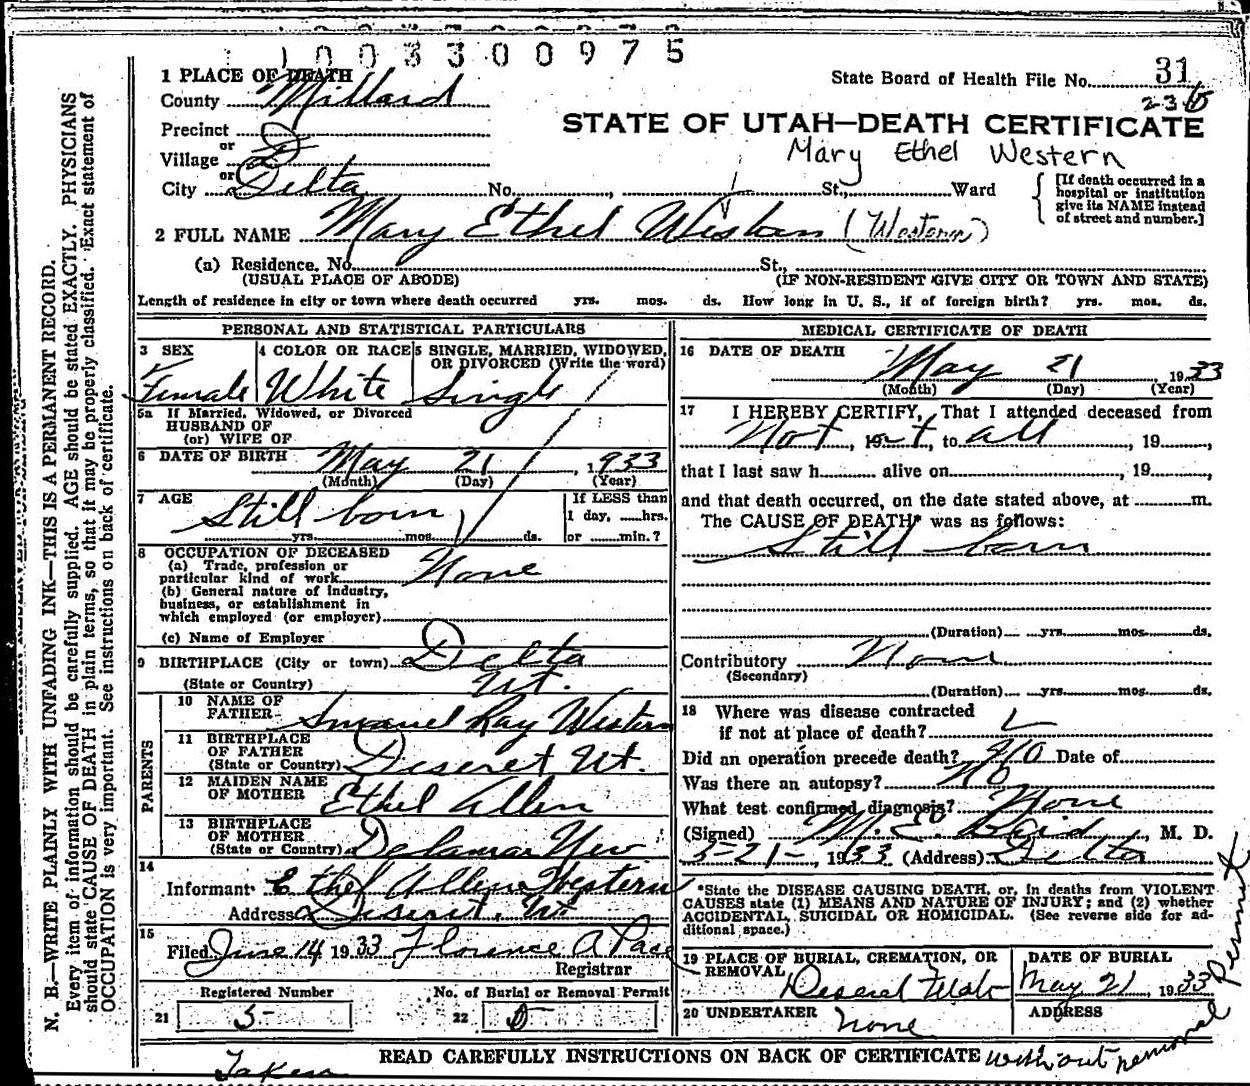 1003300975
State Board of Health File No. 31
235
1 PLACE OF DEATH
County Millard
STATE OF UTAH—DEATH CERTIFICATE
Mary Ethel Western
Precinct
or
Village D
or
City Delta No. , St., Ward
[If death occurred in a hospital or institution give its NAME instead of street and number.]
2 FULL NAME Mary Ethel Western (Western)
(a) Residence. No. St.,
(USUAL PLACE OF ABODE) (IF NON-RESIDENT GIVE CITY OR TOWN AND STATE)
Length of residence in city or town where death occurred yrs. mos. ds. How long in U. S., if of foreign birth? yrs. mos. ds.
PERSONAL AND STATISTICAL PARTICULARS
3 SEX 4 COLOR OR RACE 5 SINGLE, MARRIED, WIDOWED, OR DIVORCED (Write the word)
Female White Single
5a If Married, Widowed, or Divorced
HUSBAND OF
(or) WIFE OF
6 DATE OF BIRTH May 21, 1933
(Month) (Day) (Year)
7 AGE Still born
yrs. mos. ds.
If LESS than
1 day, hrs.
or min.?
8 OCCUPATION OF DECEASED
(a) Trade, profession or
particular kind of work None
(b) General nature of industry,
business, or establishment in
which employed (or employer)
(c) Name of Employer
9 BIRTHPLACE (City or town) Delta
(State or Country) Ut.
PARENTS
10 NAME OF FATHER Ray Western
11 BIRTHPLACE OF FATHER
(State or Country) Deseret Ut.
12 MAIDEN NAME OF MOTHER Ethel Allen
13 BIRTHPLACE OF MOTHER
(State or Country) Delamar Nev.
14 Informant Ethel Allen Western
Address Deseret, Ut.
15 Filed June 14 1933 Florence A Pace
Registrar
Registered Number
21 5
No. of Burial or Removal Permit
22
MEDICAL CERTIFICATE OF DEATH
16 DATE OF DEATH May 21 1933
(Month) (Day) (Year)
17 I HEREBY CERTIFY, That I attended deceased from
Not, 19 at, to all, 19
that I last saw h alive on , 19
and that death occurred, on the date stated above, at m.
The CAUSE OF DEATH* was as follows:
Still born
(Duration) yrs. mos. ds.
Contributory None
(Secondary)
(Duration) yrs. mos. ds.
18 Where was disease contracted
if not at place of death?
Did an operation precede death? No Date of
Was there an autopsy? No
What test confirmed diagnosis? None
(Signed) M. E. Bird, M. D.
5-21-, 1933 (Address) Delta
*State the DISEASE CAUSING DEATH, or, in deaths from VIOLENT
CAUSES state (1) MEANS AND NATURE OF INJURY; and (2) whether
ACCIDENTAL, SUICIDAL OR HOMICIDAL. (See reverse side for ad-
ditional space.)
19 PLACE OF BURIAL, CREMATION, OR REMOVAL
Deseret Utah
DATE OF BURIAL
May 21, 1933
20 UNDERTAKER None
ADDRESS
READ CAREFULLY INSTRUCTIONS ON BACK OF CERTIFICATE
Taken without removal Permit
N. B.—WRITE PLAINLY WITH UNFADING INK—THIS IS A PERMANENT RECORD.
Every item of information should be carefully supplied. AGE should be stated EXACTLY. PHYSICIANS
should state CAUSE OF DEATH in plain terms, so that it may be properly classified. Exact statement of
OCCUPATION is very important. See instructions on back of certificate.